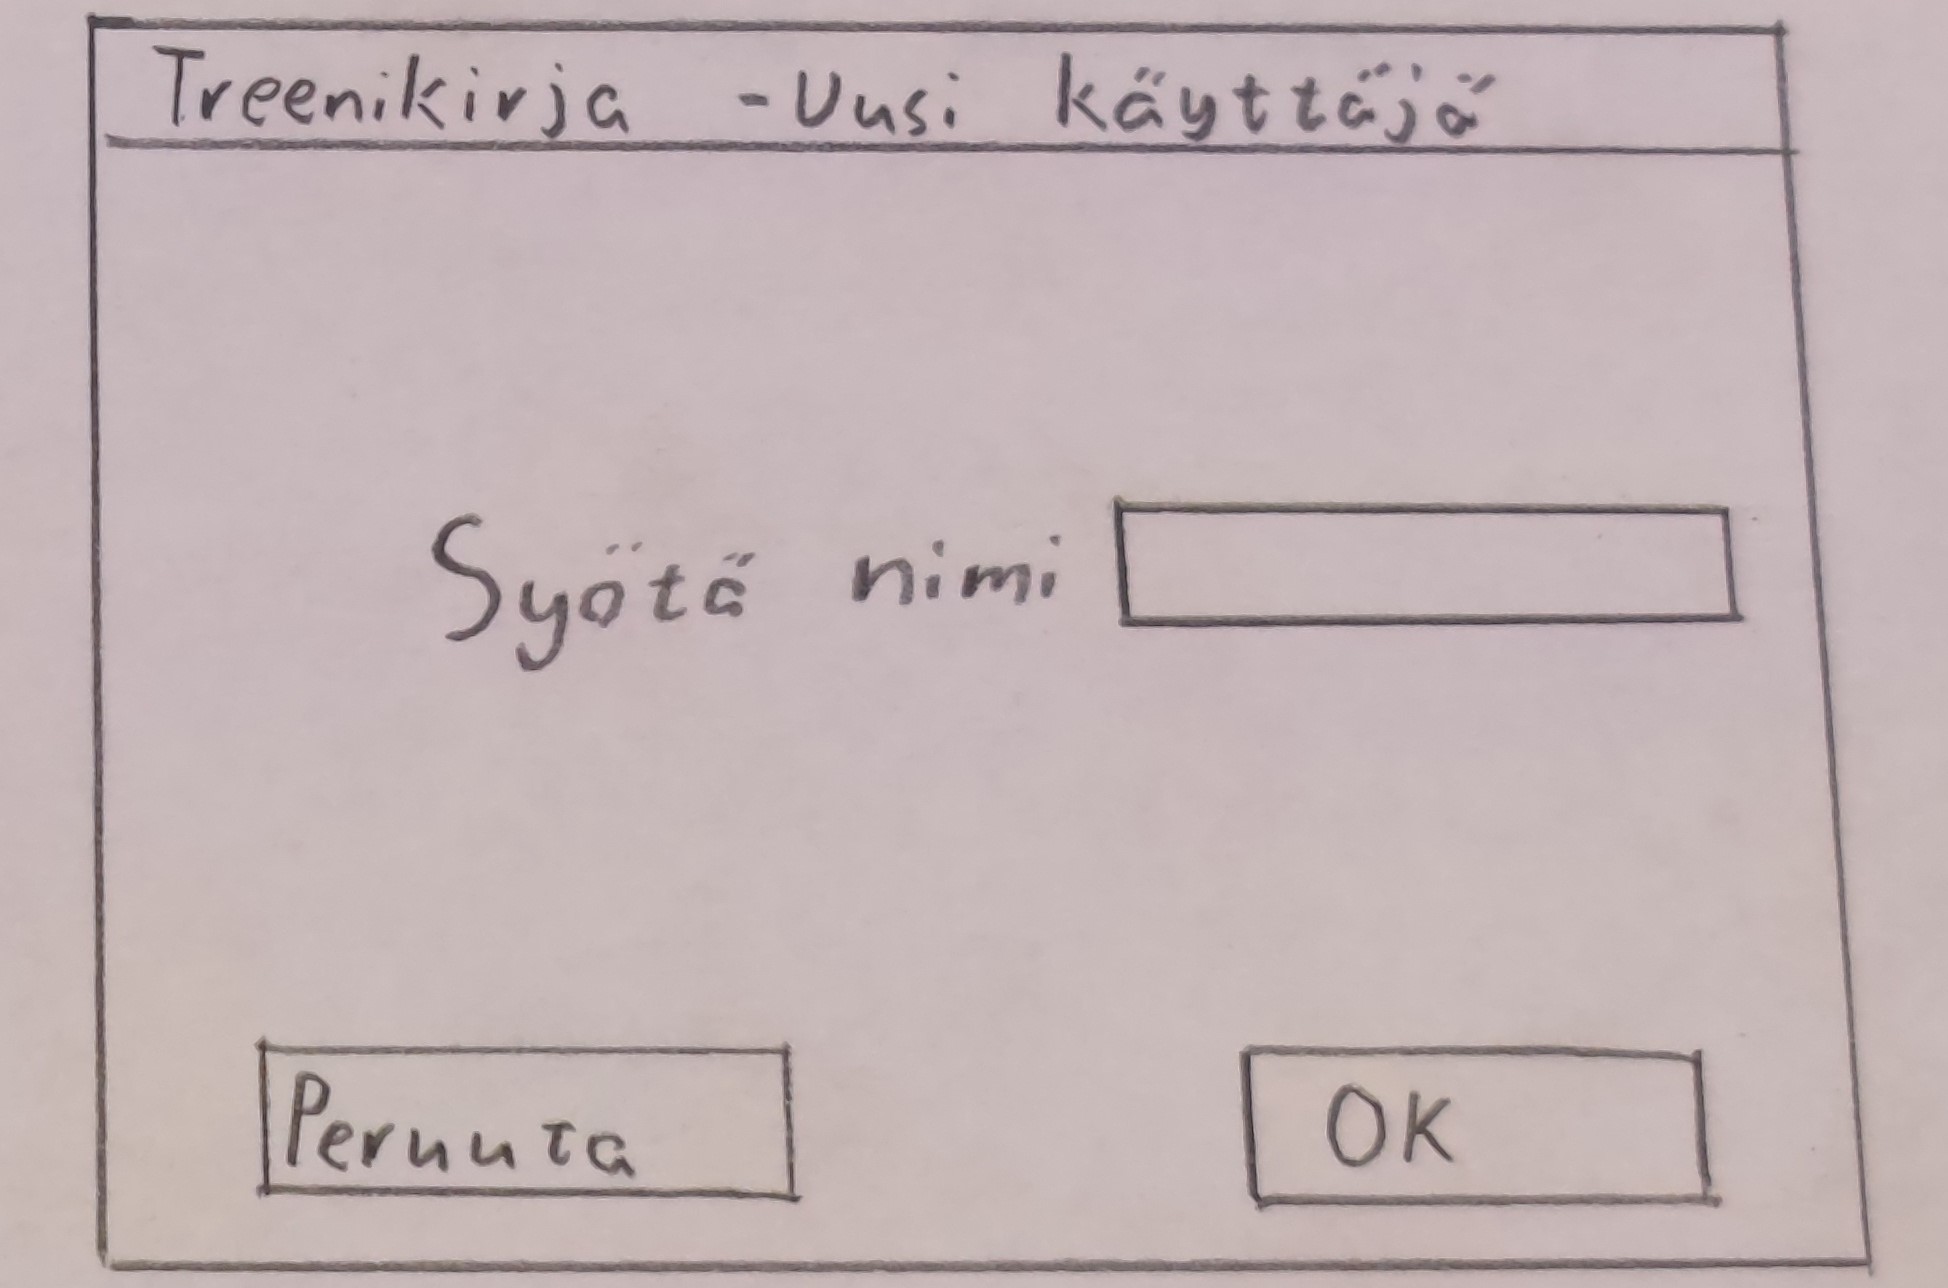 Treenikirja - Uusi käyttäjä
Syötä nimi
Peruuta
OK